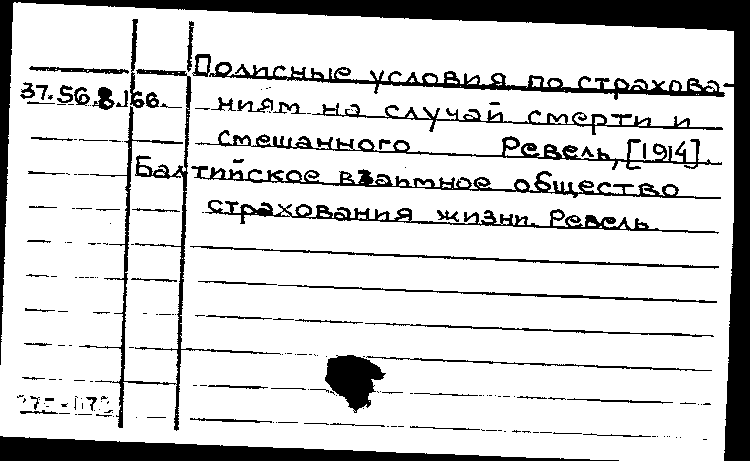 Полисные условия по страхова-
37.56.8.166. ниям на случай смерти и
смешанного Ревель, [1914].
Балтийское взаимное общество
страхования жизни. Ревель.